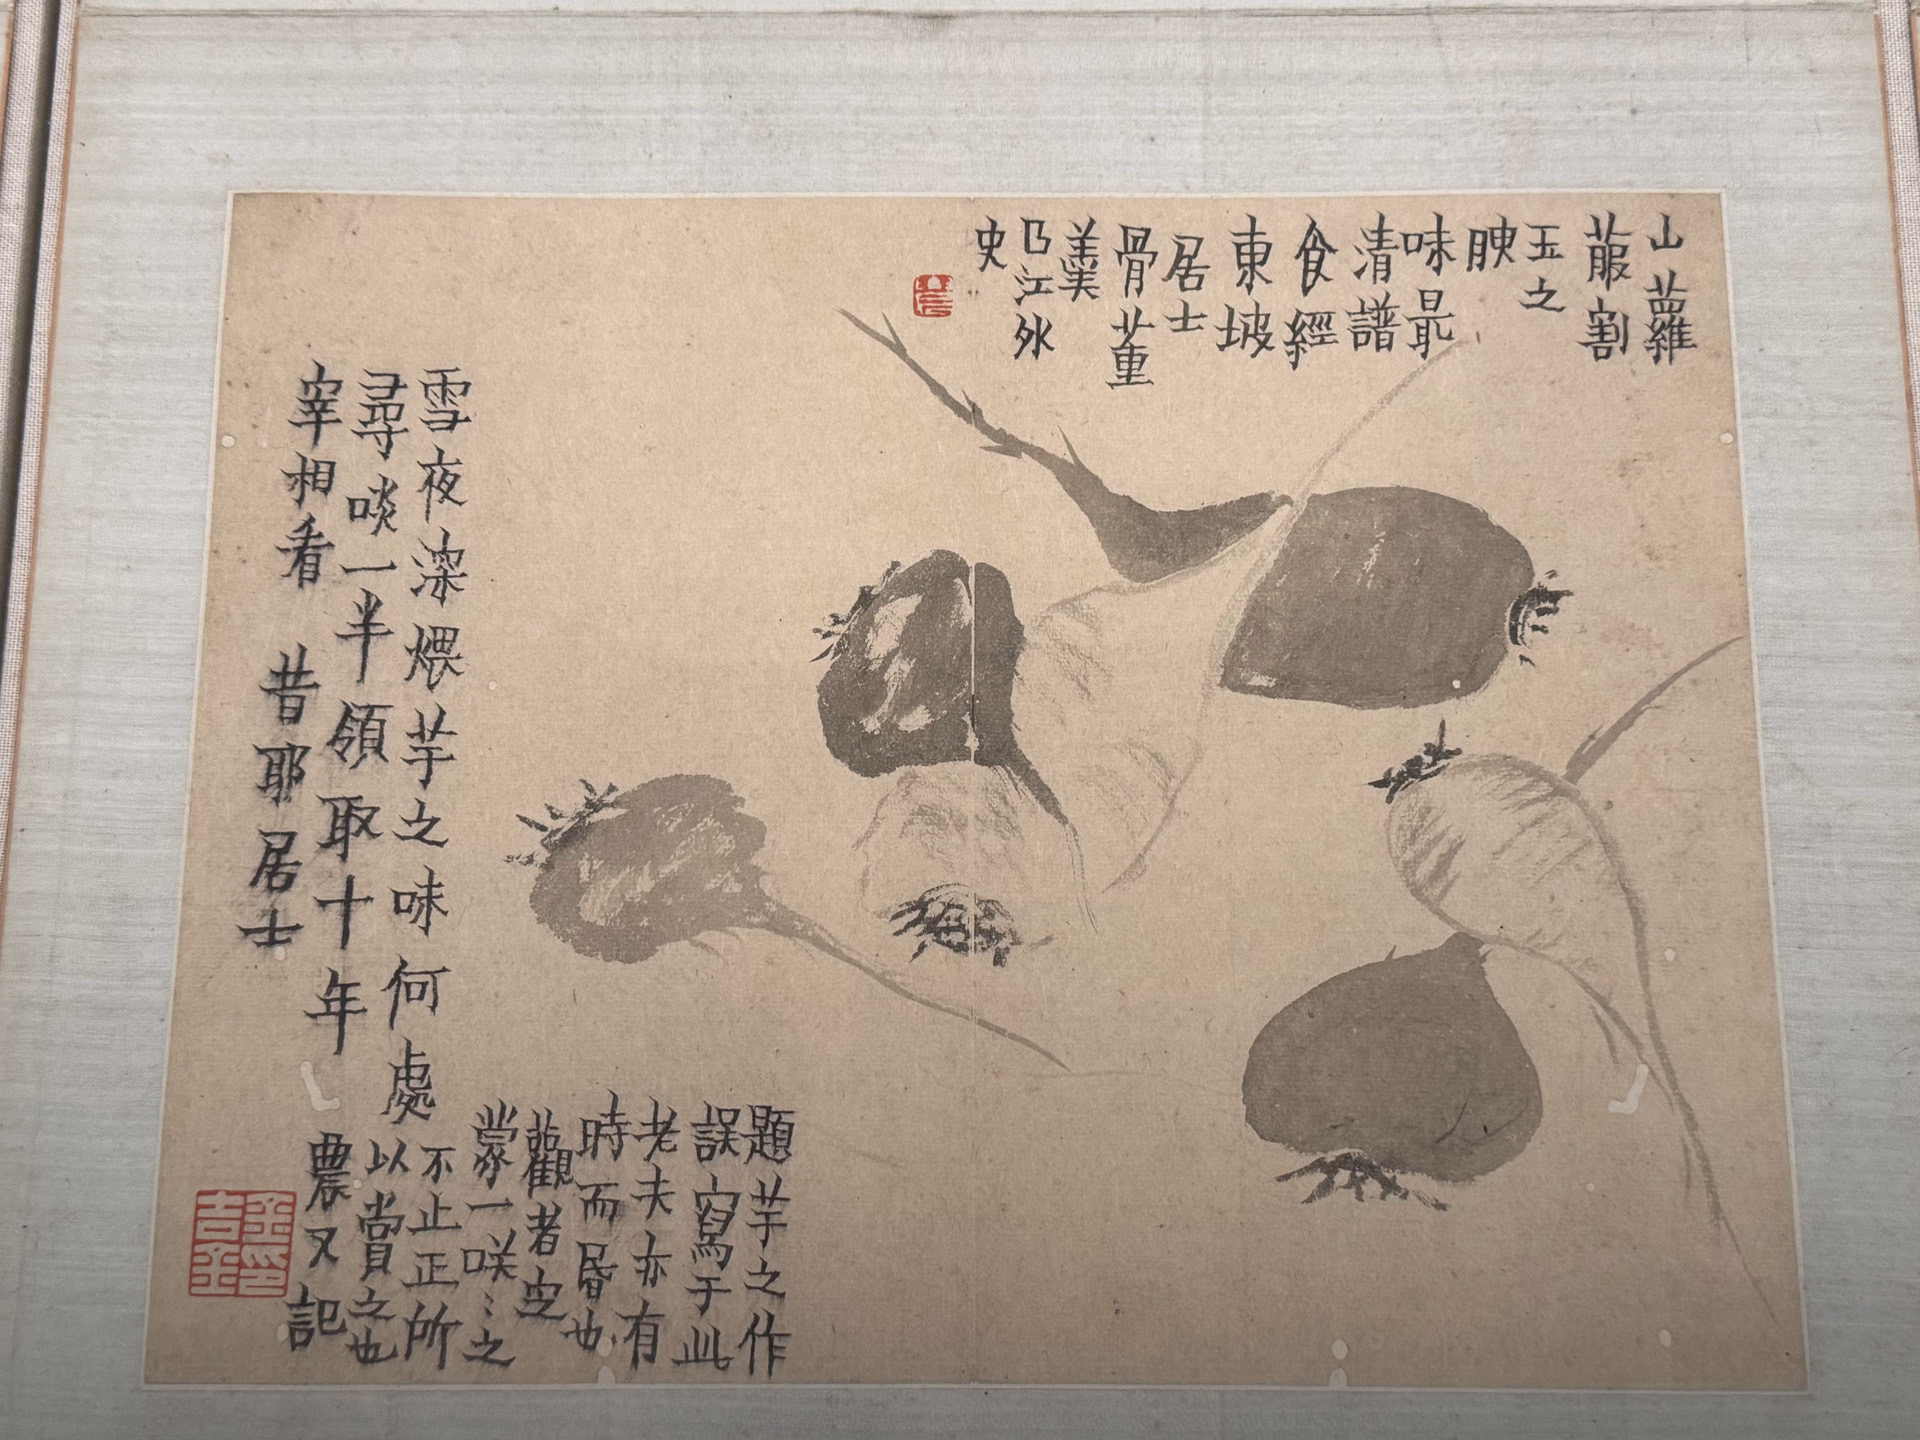 山蘿
菔割
玉之
腴
味最
清譜
食經
東坡
居士
骨董
羹
乃江外
史
雪夜深煨芋之味何處
尋啖一半領取十年
宰相看
昔耶居士
題芋之作
誤寫于此
老夫亦有
時而昏也
觀者定
蒙一咲〻之
不止正所
以賞之也
農又記
金吉金印